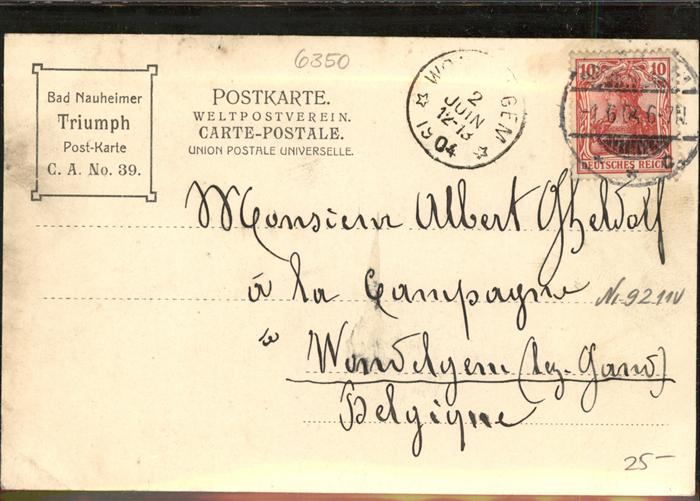 6350
Bad Nauheimer
Triumph
Post-Karte
C. A. No. 39.
POSTKARTE.
WELTPOSTVEREIN.
CARTE-POSTALE.
UNION POSTALE UNIVERSELLE.
2
JUIN
12-13
1904
10 10
DEUTSCHES REICH
Monsieur Albert Gheldolf
à la Campagne
à Wondelgem (lez-Gand)
Belgique
25-